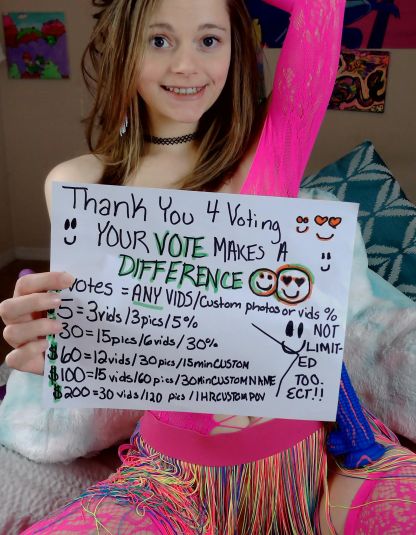 Thank You 4 Voting
YOUR VOTE MAKES A
DIFFERENCE
Votes = ANY VIDS/Custom photos or vids %
5 = 3vids/3pics/5%
30 = 15pics/6vids/30%
$60 = 12vids/30pics/15minCUSTOM
$100 = 15vids/60pics/30minCUSTOMNAME
$200 = 30 vids/120 pics/1HRCUSTOM POV
NOT
LIMIT-
ED
TOO.
ECT!!